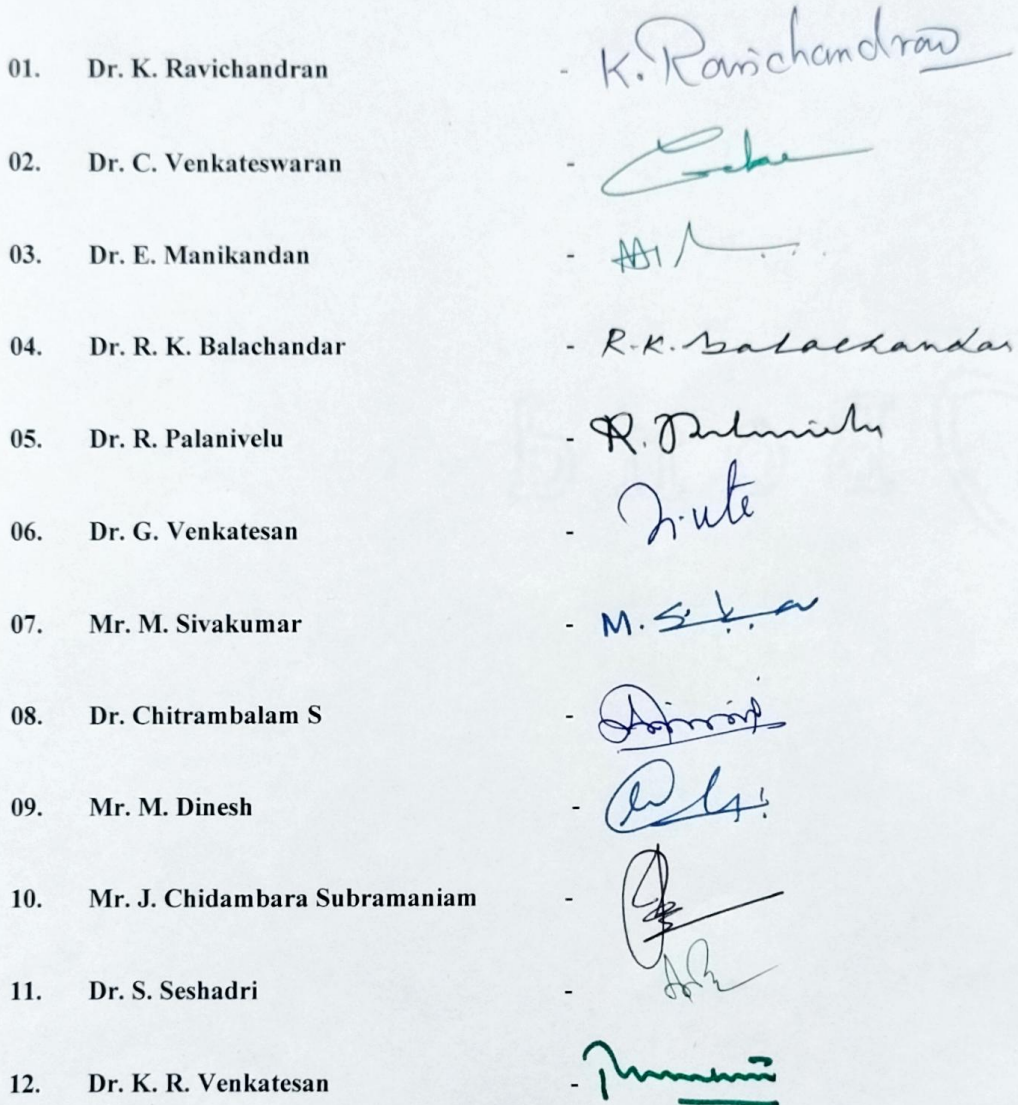 01. Dr. K. Ravichandran - K. Ravichandran
02. Dr. C. Venkateswaran -
03. Dr. E. Manikandan -
04. Dr. R. K. Balachandar - R.K. Balachandar
05. Dr. R. Palanivelu - R. Palanivelu
06. Dr. G. Venkatesan -
07. Mr. M. Sivakumar - M.
08. Dr. Chitrambalam S -
09. Mr. M. Dinesh -
10. Mr. J. Chidambara Subramaniam -
11. Dr. S. Seshadri -
12. Dr. K. R. Venkatesan -